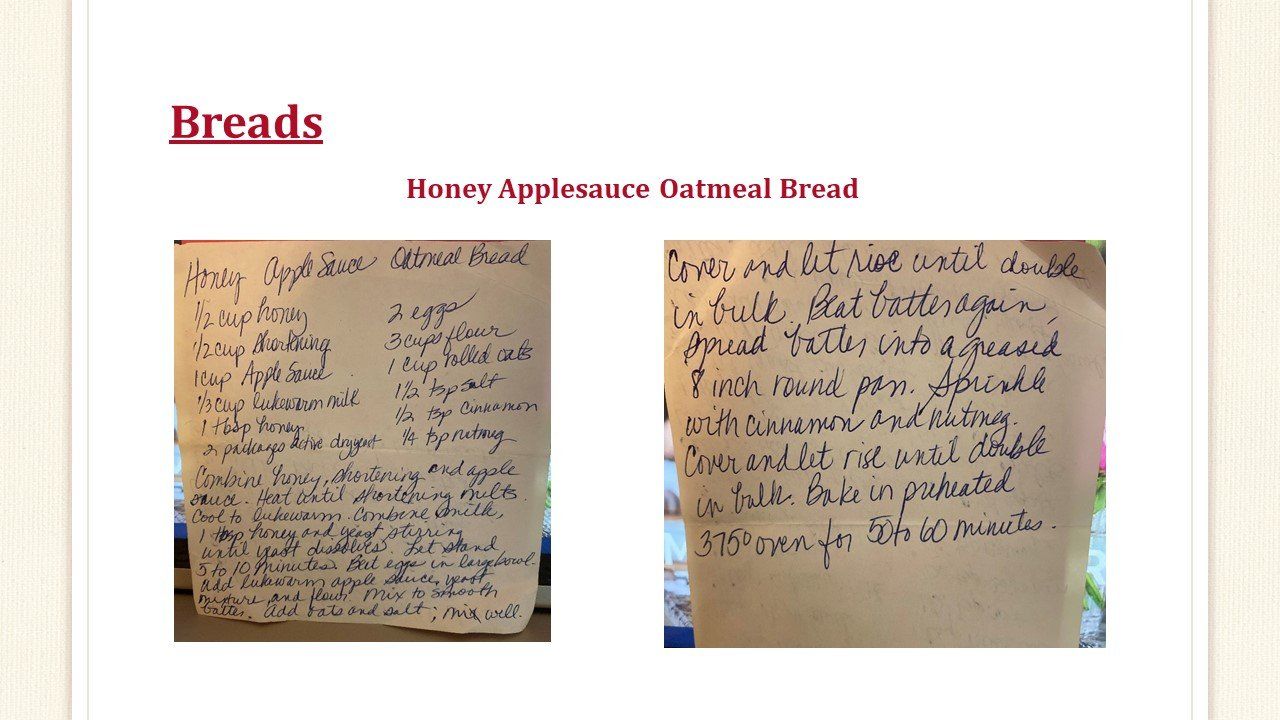 Breads
Honey Applesauce Oatmeal Bread
Honey Apple Sauce Oatmeal Bread
1/2 cup honey
1/2 cup Shortening
1 cup Apple Sauce
1/3 cup lukewarm milk
1 tbsp honey
2 packages active dry yeast
2 eggs
3 cups flour
1 cup rolled oats
1 1/2 tsp salt
1/2 tsp Cinnamon
1/4 tsp nutmeg
Combine honey, shortening and apple
sauce. Heat until shortening melts.
Cool to lukewarm. Combine milk,
1 tbsp honey and yeast stirring
until yeast dissolves. Let stand
5 to 10 minutes. Beat eggs in large bowl.
add lukewarm apple sauce, yeast
mixture, and flour. Mix to smooth
batter. Add oats and salt; mix well.
Cover and let rise until double
in bulk. Beat batter again,
spread batter into a greased
8 inch round pan. Sprinkle
with cinnamon and nutmeg.
Cover and let rise until double
in bulk. Bake in preheated
375° oven for 50 to 60 minutes.